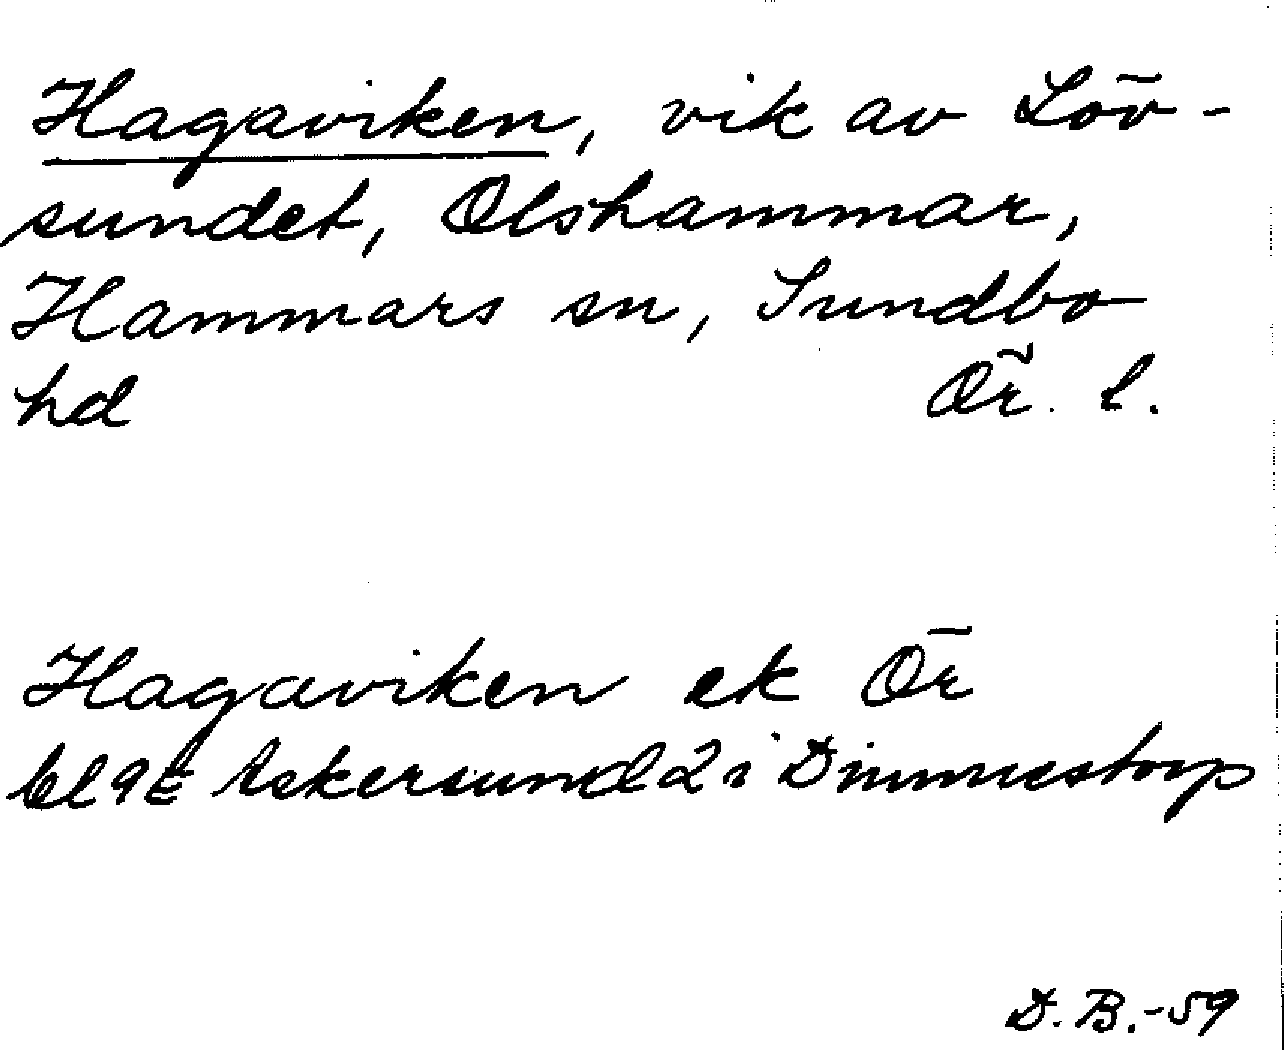 Hagaviken, vik av Löv-
sundet, Olshammar,
Hammars sn, Sundbo
hd Ör. l.
Hagaviken ek Ör
bl 9E Askersund 2 i Dimmestorp
D. B.-59